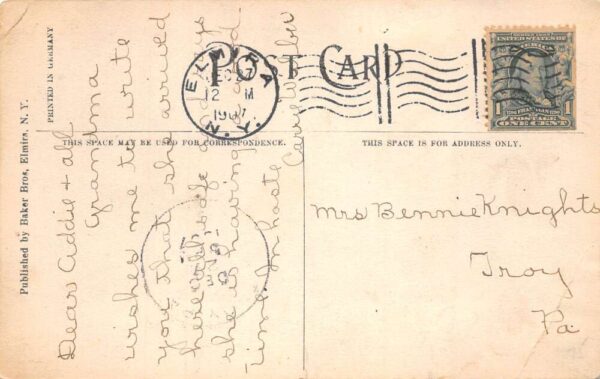 POST CARD
ELMIRA
12 M
1907
N.Y.
SERIES 1902
UNITED STATES OF AMERICA
1 1
FRANKLIN
POSTAGE
ONE CENT
THIS SPACE MAY BE USED FOR CORRESPONDENCE.
THIS SPACE IS FOR ADDRESS ONLY.
PRINTED IN GERMANY
Published by Baker Bros, Elmira, N. Y.
Dear Addie & all
Grandma
wishes me to write
you that she arrived
here safe and
she is having a good
time. In haste
Mrs Bennie Knights
Troy
Pa